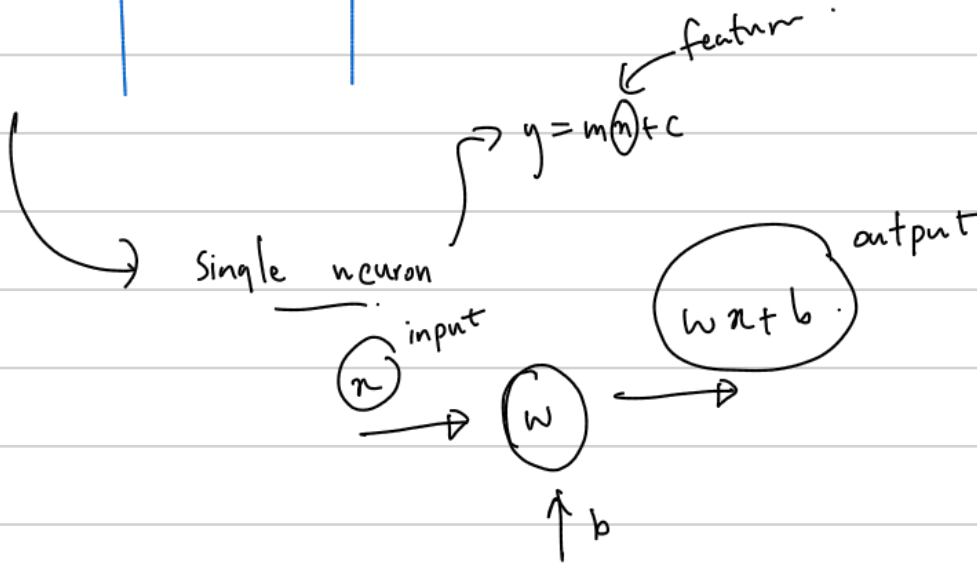 feature
y = mx + c
Single neuron
output
wx + b
input
x
w
b